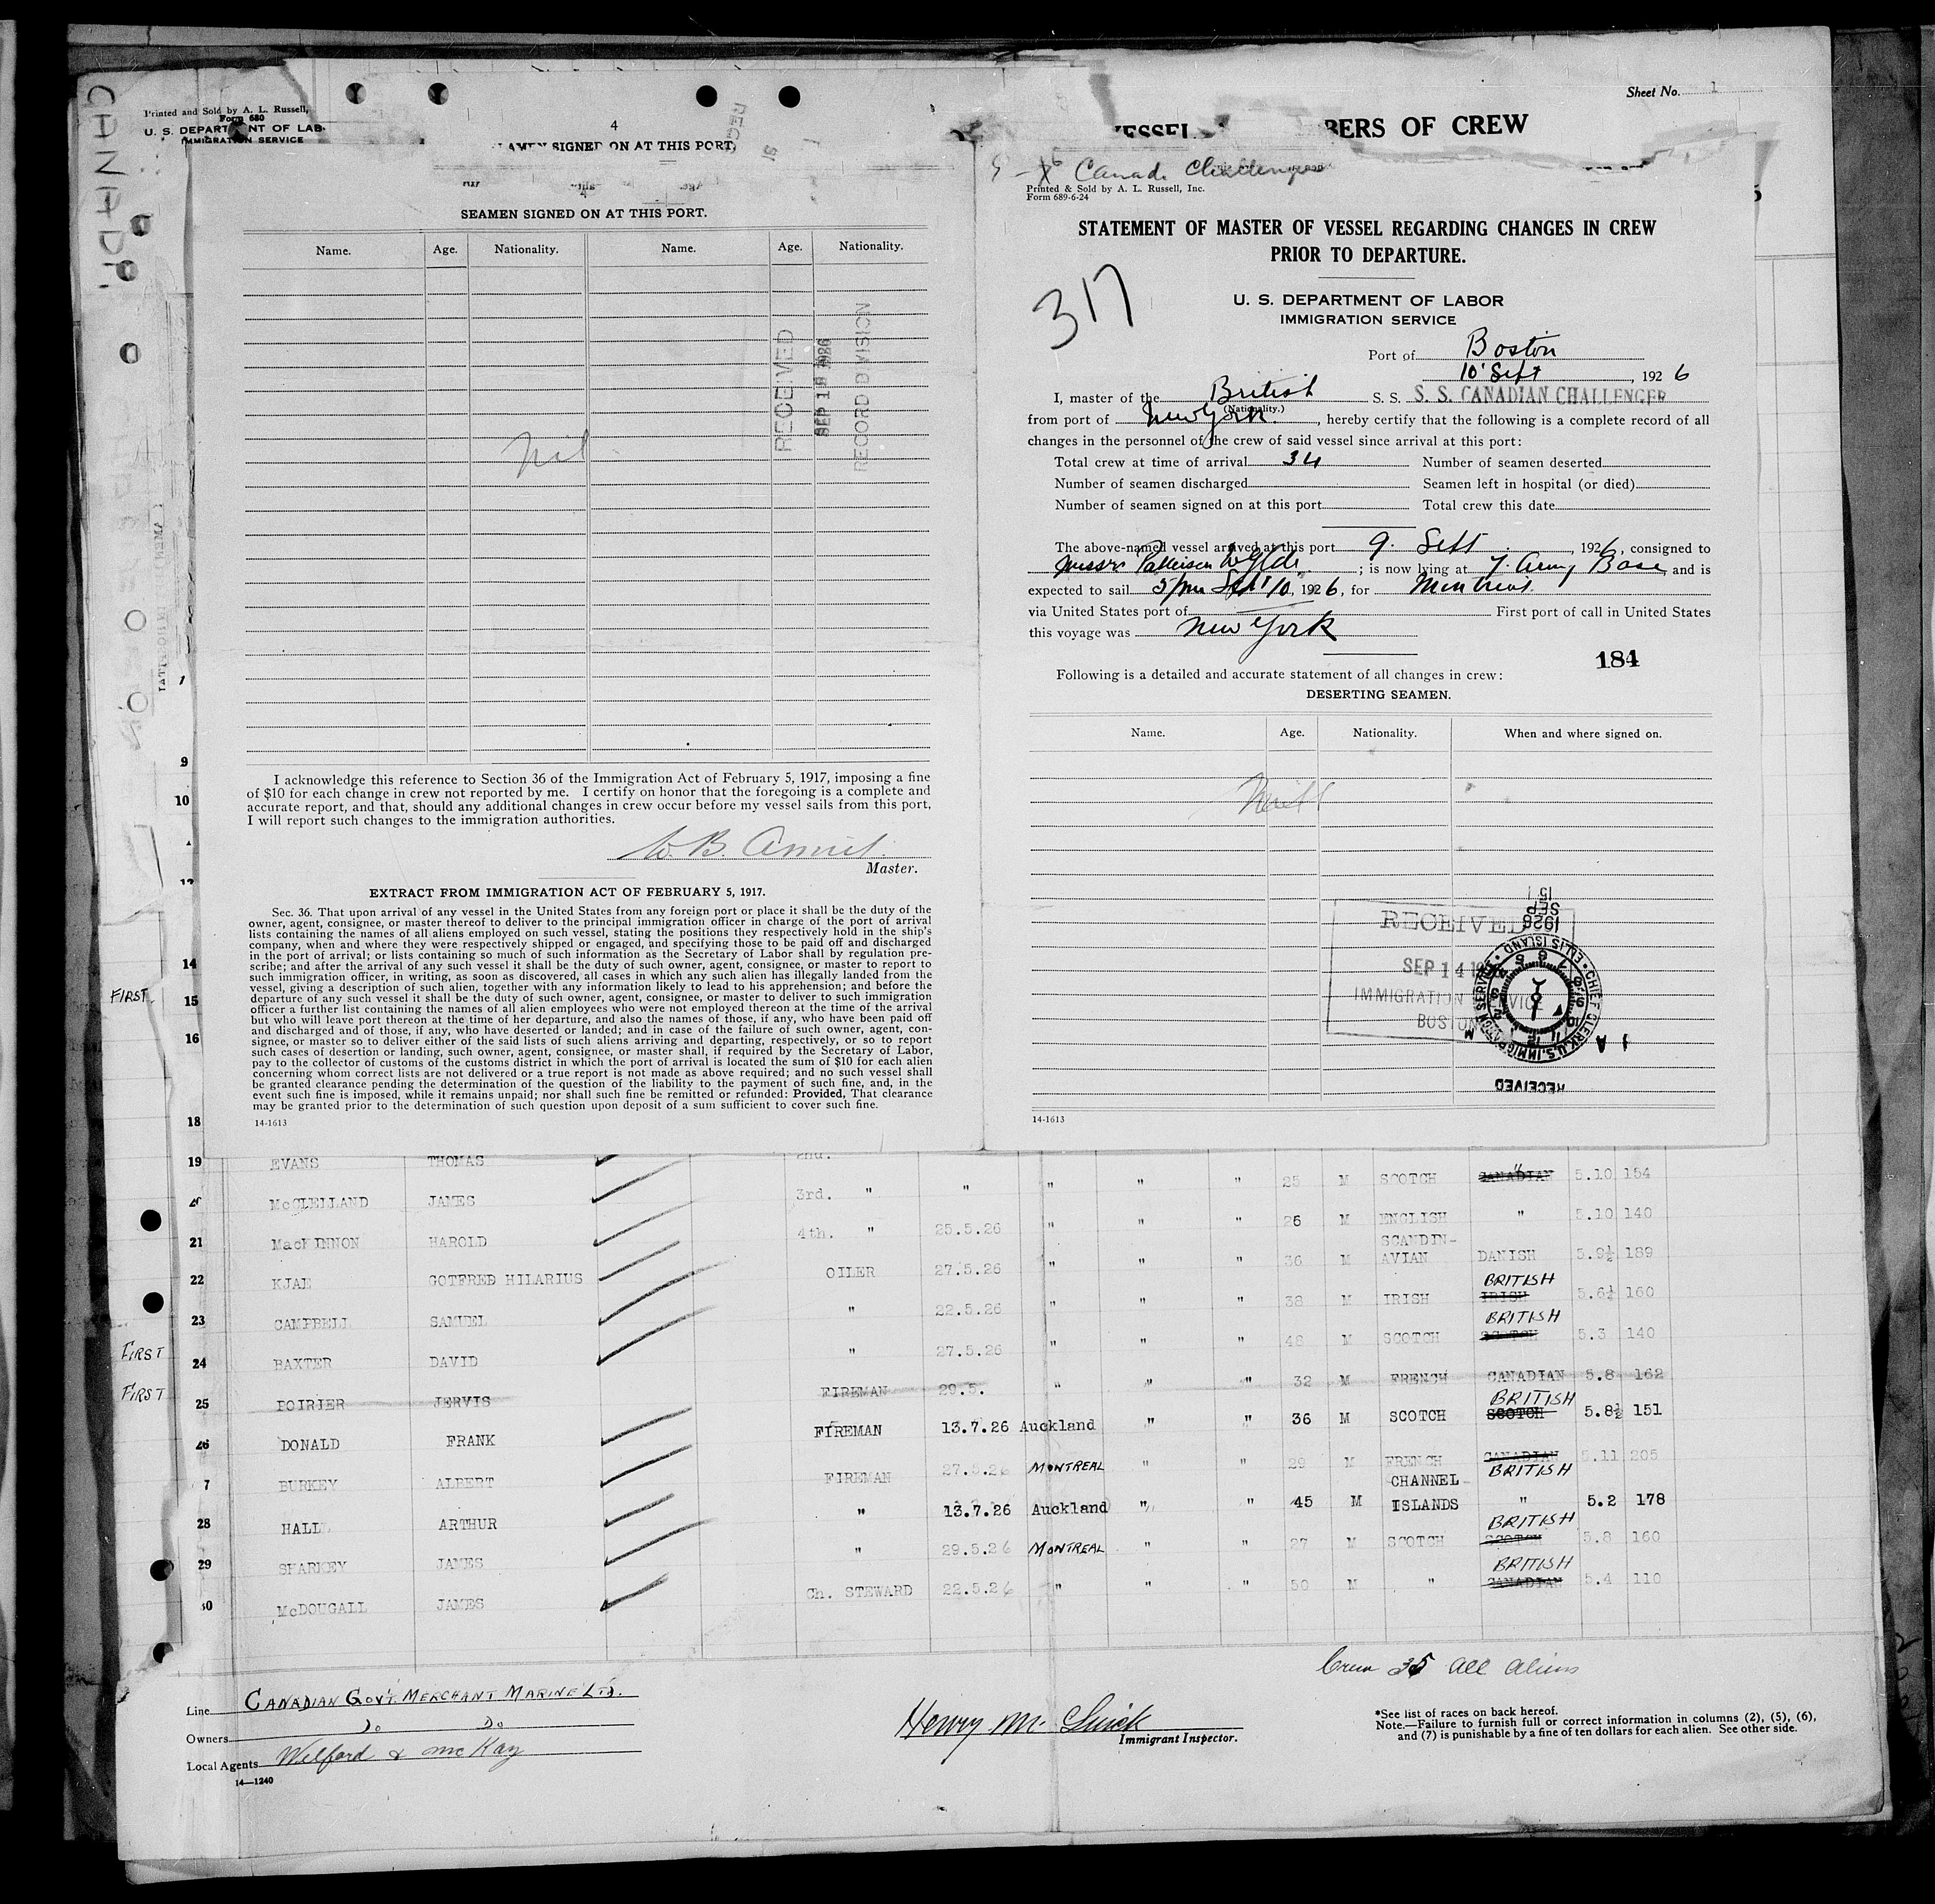 CANADI
Printed and Sold by A. L. Russell,
Form 680
U. S. DEPARTMENT OF LAB
IMMIGRATION SERVICE
4
SEAMEN SIGNED ON AT THIS PORT.
SEAMEN SIGNED ON AT THIS PORT.
Name. Age. Nationality. Name. Age. Nationality.
RECEIVED
SEP 1 1926
RECORD DIVISION
Nil
I acknowledge this reference to Section 36 of the Immigration Act of February 5, 1917, imposing a fine
of $10 for each change in crew not reported by me. I certify on honor that the foregoing is a complete and
accurate report, and that, should any additional changes in crew occur before my vessel sails from this port,
I will report such changes to the immigration authorities.
W. B.
Master.
EXTRACT FROM IMMIGRATION ACT OF FEBRUARY 5, 1917.
Sec. 36. That upon arrival of any vessel in the United States from any foreign port or place it shall be the duty of the
owner, agent, consignee, or master thereof to deliver to the principal immigration officer in charge of the port of arrival
lists containing the names of all aliens employed on such vessel, stating the positions they respectively hold in the ship's
company, when and where they were respectively shipped or engaged, and specifying those to be paid off and discharged
in the port of arrival; or lists containing so much of such information as the Secretary of Labor shall by regulation pre-
scribe; and after the arrival of any such vessel it shall be the duty of such owner, agent, consignee, or master to report to
such immigration officer, in writing, as soon as discovered, all cases in which any such alien has illegally landed from the
vessel, giving a description of such alien, together with any information likely to lead to his apprehension; and before the
departure of any such vessel it shall be the duty of such owner, agent, consignee, or master to deliver to such immigration
officer a further list containing the names of all alien employees who were not employed thereon at the time of the arrival
but who will leave port thereon at the time of her departure, and also the names of those, if any, who have been paid off
and discharged and of those, if any, who have deserted or landed; and in case of the failure of such owner, agent, con-
signee, or master so to deliver either of the said lists of such aliens arriving and departing, respectively, or so to report
such cases of desertion or landing, such owner, agent, consignee, or master shall, if required by the Secretary of Labor,
pay to the collector of customs of the customs district in which the port of arrival is located the sum of $10 for each alien
concerning whom correct lists are not delivered or a true report is not made as above required; and no such vessel shall
be granted clearance pending the determination of the question of the liability to the payment of such fine, and, in the
event such fine is imposed, while it remains unpaid; nor shall such fine be remitted or refunded: Provided, That clearance
may be granted prior to the determination of such question upon deposit of a sum sufficient to cover such fine.
14-1613
Sheet No. 1
VESSEL BERS OF CREW
Canada Challenger
Printed & Sold by A. L. Russell, Inc.
Form 689-6-24
STATEMENT OF MASTER OF VESSEL REGARDING CHANGES IN CREW
PRIOR TO DEPARTURE.
317
U. S. DEPARTMENT OF LABOR
IMMIGRATION SERVICE
Port of Boston
10 Sept, 1926
I, master of the British S. S. S. S. CANADIAN CHALLENGER
(Nationality.)
from port of New York., hereby certify that the following is a complete record of all
changes in the personnel of the crew of said vessel since arrival at this port:
Total crew at time of arrival 34 Number of seamen deserted
Number of seamen discharged Seamen left in hospital (or died)
Number of seamen signed on at this port Total crew this date
The above-named vessel arrived at this port 9. Sept, 1926, consigned to
Messrs Patterson Wylde; is now lying at 7. Army Base, and is
expected to sail 5 pm Sept 10, 1926, for Montreal.
via United States port of First port of call in United States
this voyage was New York
184
Following is a detailed and accurate statement of all changes in crew:
DESERTING SEAMEN.
Name. Age. Nationality. When and where signed on.
RECEIVED
SEP 14 19
IMMIGRATION SERVICE
BOSTON
1926
SEP
15
CHIEF CLERK, U.S. IMMIGRATION SERVICE ELLIS ISLAND
RECEIVED
14-1613
9
10
12
14
FIRST 15
16
18
19 EVANS THOMAS 2nd.
20 McCLELLAND JAMES 3rd. " " " " " 25 M SCOTCH CANADIAN " 5.10 154
21 MacKINNON HAROLD 4th. " 25.5.26 " " " 26 M ENGLISH " 5.10 140
22 KJAE GOTFRED HILARIUS OILER 27.5.26 " " " 36 M SCANDIN-AVIAN DANISH 5.9½ 189
23 CAMPBELL SAMUEL " 22.5.26 " " " 38 M IRISH IRISH BRITISH 5.6½ 160
FIRST 24 BAXTER DAVID " 27.5.26 " " " 48 M SCOTCH SCOTCH BRITISH 5.3 140
FIRST 25 POIRIER JERVIS FIREMAN 29.5. " " " 32 M FRENCH CANADIAN 5.8 162
26 DONALD FRANK FIREMAN 13.7.26 Auckland " " 36 M SCOTCH SCOTCH BRITISH 5.8½ 151
7 BURKEY ALBERT FIREMAN 27.5.26 MONTREAL " " 29 M FRENCH CANADIAN BRITISH 5.11 205
28 HALL ARTHUR " 13.7.26 Auckland " " 45 M CHANNEL ISLANDS " 5.2 178
29 SHARKEY JAMES " 29.5.26 MONTREAL " " 27 M SCOTCH SCOTCH BRITISH 5.8 160
30 McDOUGALL JAMES Ch. STEWARD 22.5.26 " " " 50 M " CANADIAN BRITISH 5.4 110
Crew 35 all aliens
Line CANADIAN GOV'T. MERCHANT MARINE LTD.
Owners Do Do
Local Agents Welford & McKay
14—1240
Henry M.
Immigrant Inspector.
*See list of races on back hereof.
Note.—Failure to furnish full or correct information in columns (2), (5), (6),
and (7) is punishable by a fine of ten dollars for each alien. See other side.